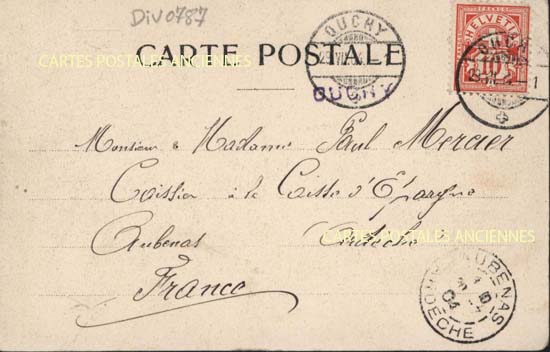 Div0787
CARTE POSTALE
OUCHY
OUCHY
HELVETIA
10
CARTES POSTALES ANCIENNES
Monsieur & Madame Paul Mercier
Caissier à la Caisse d'Épargne
CARTES POSTALES ANCIENNES
Aubenas Ardèche
France
AUBENAS
ARDECHE
04